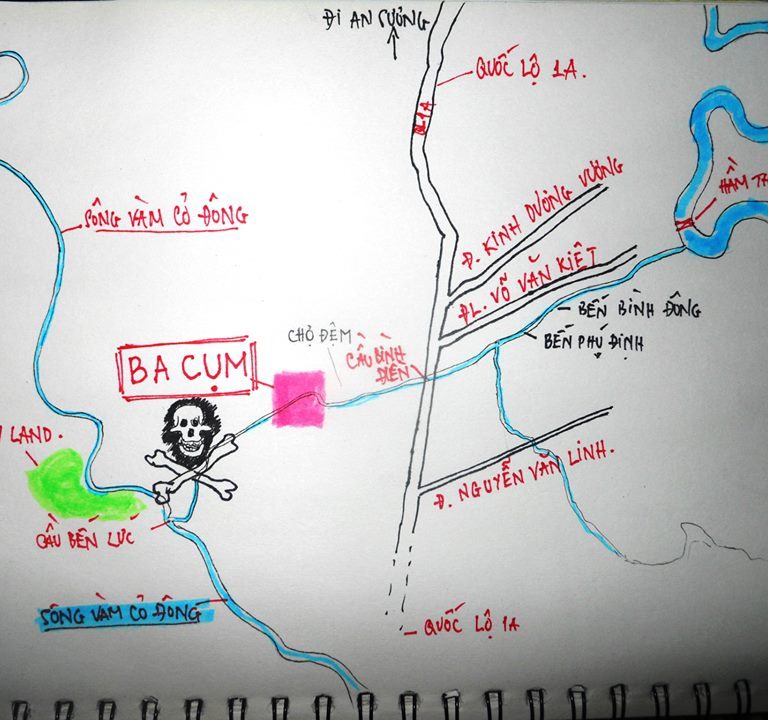 ĐI AN SƯƠNG
QUỐC LỘ 1A.
QL1A
HẦM TH
Đ. KINH DƯƠNG VƯƠNG
SÔNG VÀM CỎ ĐÔNG
ĐL. VÕ VĂN KIỆT
BẾN BÌNH ĐÔNG
BẾN PHÚ ĐỊNH
CHỢ ĐỆM
CẦU BÌNH
ĐIỀN
BA CỤM
LAND.
Đ. NGUYỄN VĂN LINH.
CẦU BẾN LỨC
SÔNG VÀM CỎ ĐÔNG
QUỐC LỘ 1A